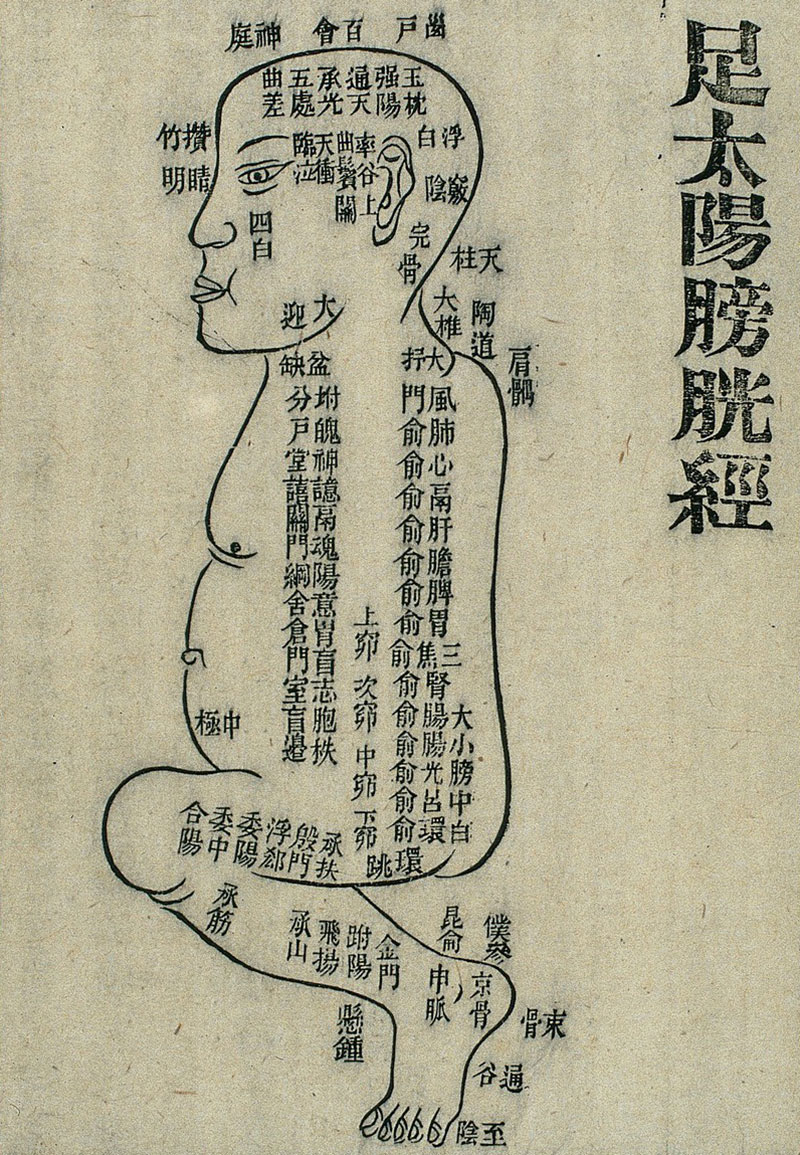 足太陽膀胱經
神庭
百會
戶
玉枕
强陽
通天
承光
五處
曲差
攢竹
睛明
浮白
竅陰
完骨
率谷
曲鬢
天衝
臨泣
上關
四白
大迎
天柱
大椎
陶道
肩髃
缺盆
大抒
風門
肺俞
心俞
鬲俞
肝俞
膽俞
脾俞
胃俞
三焦俞
腎俞
大腸俞
小腸俞
膀光俞
中呂俞
白環俞
環跳
坿分
魄戶
神堂
譩譆
鬲關
魂門
陽綱
意舍
胃倉
肓門
志室
胞肓
秩邊
上窌
次窌
中窌
下窌
中極
承扶
殷門
浮郄
委陽
委中
合陽
承筋
承山
飛揚
跗陽
金門
懸鍾
昆侖
僕參
申脈
京骨
束骨
通谷
至陰